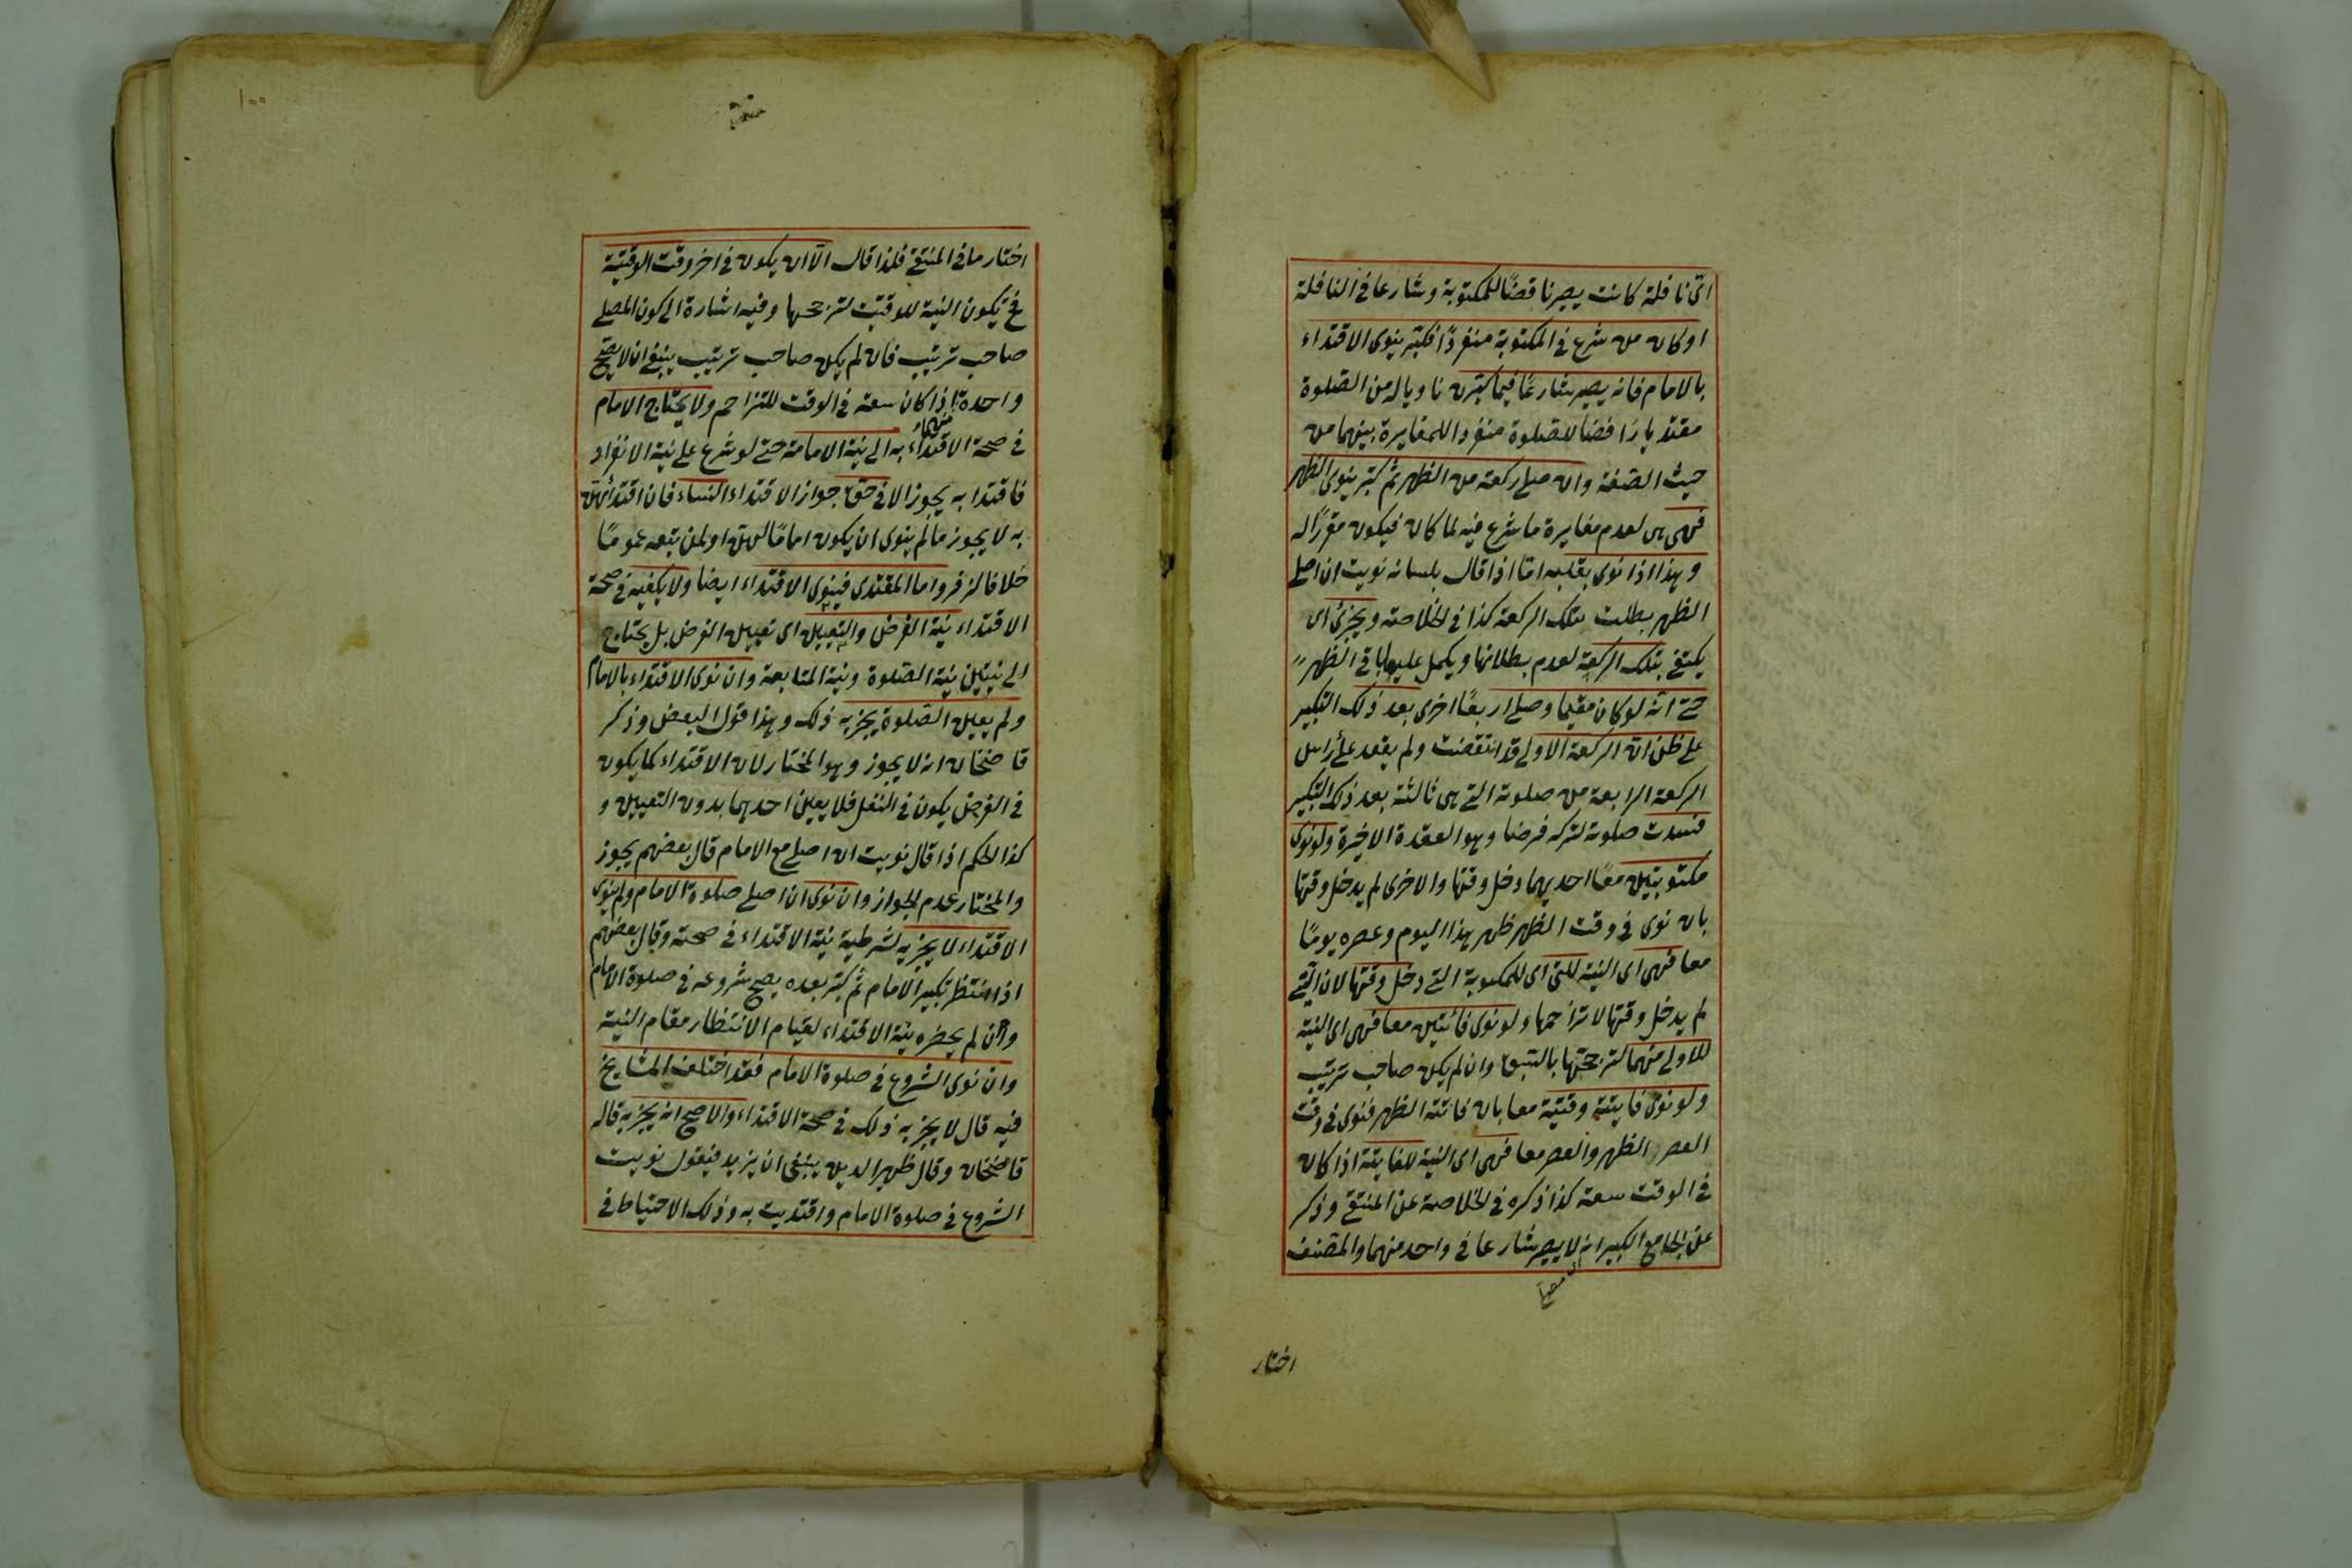 اتى نافلة كانت يصير ناقضًا للمكتوبة وشارعا فى النافلة
او كان من شرع فى المكتوبة منفردًا فكبّر ينوى الاقتداء
بالامام فانه يصير شارعًا فيما كبّر ناويا له من الصّلوة
مقتديا رافضا للصّلوة منفردا للمغايرة بينهما من
حيث الصّفة وان صلى ركعة من الظهر ثم كبّر ينوى الظهر
فهى هى لعدم مغايرة ما شرع فيه لما كان فيكون مقررًا له
وهذا اذا نوى بقلبه امّا اذا قال بلسانه نويت ان اصلى
الظهر بطلت تلك الركعة كذا فى الخلاصة ويجزئ اى
يكتفى بتلك الركعة لعدم بطلانها ويكمل عليها باقى الظهر
حتى انّه لو كان مقيما وصلى اربعًا اخرى بعد ذلك التكبير
على ظن انّ الركعة الاولى قد انتقضت ولم يقعد على رأس
الركعة الرابعة من صلوته التى هى ثالثة بعد ذلك التكبير
فسدت صلوته لتركه فرضا وهو القعدة الاخيرة ولو نوى
مكتوبتين معًا احديهما دخل وقتها والاخرى لم يدخل وقتها
بان نوى فى وقت الظهر ظهر هذا اليوم وعصره يومًا
معا فهى اى النية للتى اى للمكتوبة التى دخل وقتها لان التى
لم يدخل وقتها لا تزاحمها ولو نوى فائتتين معا فهى اى النية
للاولى منهما لترجحها بالسّبق وان لم يكن صاحب ترتيب
ولو نوى فايتة وقتية معا بان فاتته الظهر فنوى فى وقت
العصر الظهر والعصر معا فهى اى النية للفايتة اذا كان
فى الوقت سعة كذا ذكره فى الخلاصة عن المنتقى وذكر
عن الجامع الكبير انه لا يصير شارعا فى واحد منهما والمصنف
اختار
١٠٠
اختار ما فى المنتقى فلذا قال الّا ان يكون فى اخر وقت الوقتية
فح تكون النية للوقتية لترجحها وفيه اشارة الى كون المصلى
صاحب ترتيب فان لم يكن صاحب ترتيب ينبغى ان لا يصح
واحدة اذا كان سعة فى الوقت للتزاحم ولا يحتاج الامام
منهما
فى صحة الاقتداء به الى نية الامامة حتى لو شرع على نية الانفراد
فاقتدا به يجوز الا فى حق جواز الاقتداء النساء فان اقتدائهنّ
به لا يجوز ما لم ينوى ان يكون امامًا لهنّ او لمن يتبعه عمومًا
خلافا لزفر واما المقتدى فينوى الاقتداء ايضا ولا يكفيه فى صحة
الاقتداء نية الفرض والتعيين اى تعيين الفرض بل يحتاج
الى نيتين نية الصّلوة ونية المتابعة وان نوى الاقتداء بالامام
ولم يعين الصّلوة يجزيه ذلك وهذا قول البعض وذكر
قاضخان انه لا يجوز وهو المختار لان الاقتداء كما يكون
فى الفرض يكون فى النفل فلا يعين احدهما بدون التعيين و
كذا الحكم اذا قال نويت ان اصلى مع الامام قال بعضهم يجوز
والمختار عدم الجواز وان نوى ان اصلى صلوة الامام ولم ينوى
الاقتداء لا يجزيه لشرطية نية الاقتداء فى صحته وقال بعضهم
اذا انتظر تكبير الامام ثم كبّر بعده يصح شروعه فى صلوة الامام
وان لم يحضره نية الاقتداء لقيام الانتظار مقام النية
وان نوى الشروع فى صلوة الامام فقد اختلف المشايخ
فيه قال لا يجزيه ذلك فى صحة الاقتداء والاصح انه يجزيه قاله
قاضخان وقال ظهير الدين ينبغى ان يزيد فيقول نويت
الشروع فى صلوة الامام واقتديت به وذلك الاحتياط فى